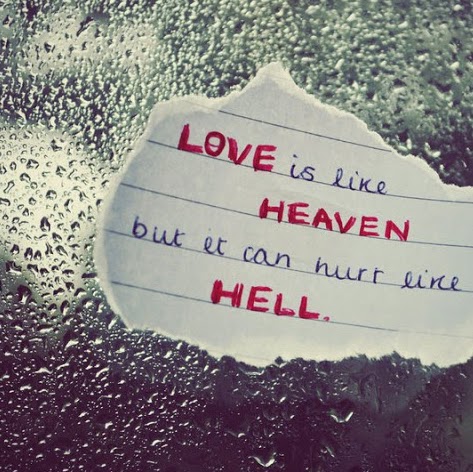 LOVE is like
HEAVEN
but it can hurt like
HELL.